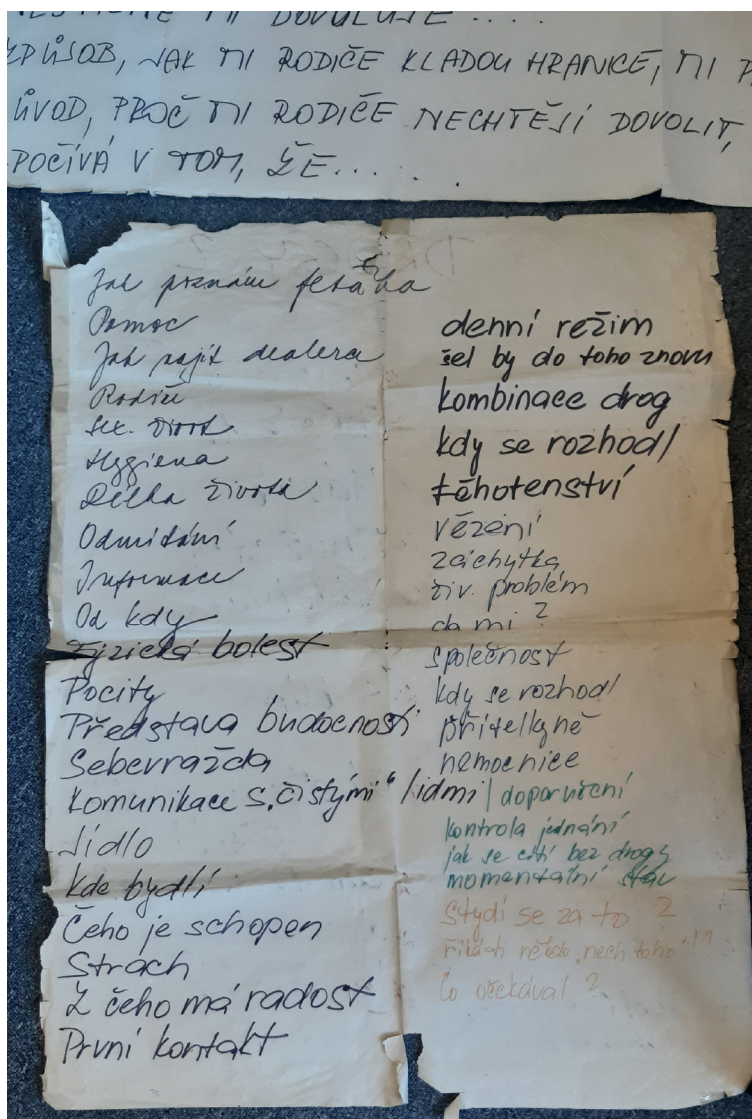 DOVOLUJE ....
ZPŮSOB, JAK MI RODIČE KLADOU HRANICE, MI
ŮVOD, PROČ MI RODIČE NECHTĚJÍ DOVOLIT,
POČÍVÁ V TOM, ŽE.....
Jak poznám feťáka
Pomoc
Jak najít dealera
Rodiče
Sex. život
Hygiena
Délka života
Odmítání
Informace
Od kdy
Fyzická bolest
Pocity
Představa budocnosti
Sebevražda
Komunikace s „čistými“ lidmi
Jídlo
Kde bydlí
Čeho je schopen
Strach
Z čeho má radost
První kontakt
denní režim
šel by do toho znovu
kombinace drog
kdy se rozhodl
těhotenství
vězení
záchytka
živ. problém
da mi ?
společnost
kdy se rozhodl
přítelkyně
nemocnice
doporučení
kontrola jednání
jak se cítí bez drogy
momentální stav
Stydí se za to ?
„nech toho“!?
Co očekával ?